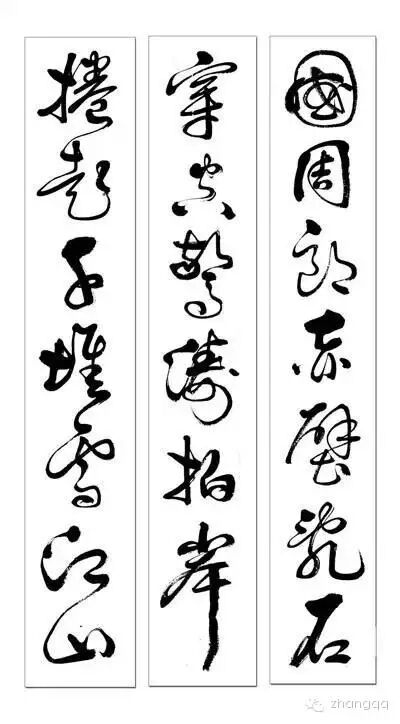 國周郎赤壁亂石
穿空驚濤拍岸
捲起千堆雪江山
zhangqq